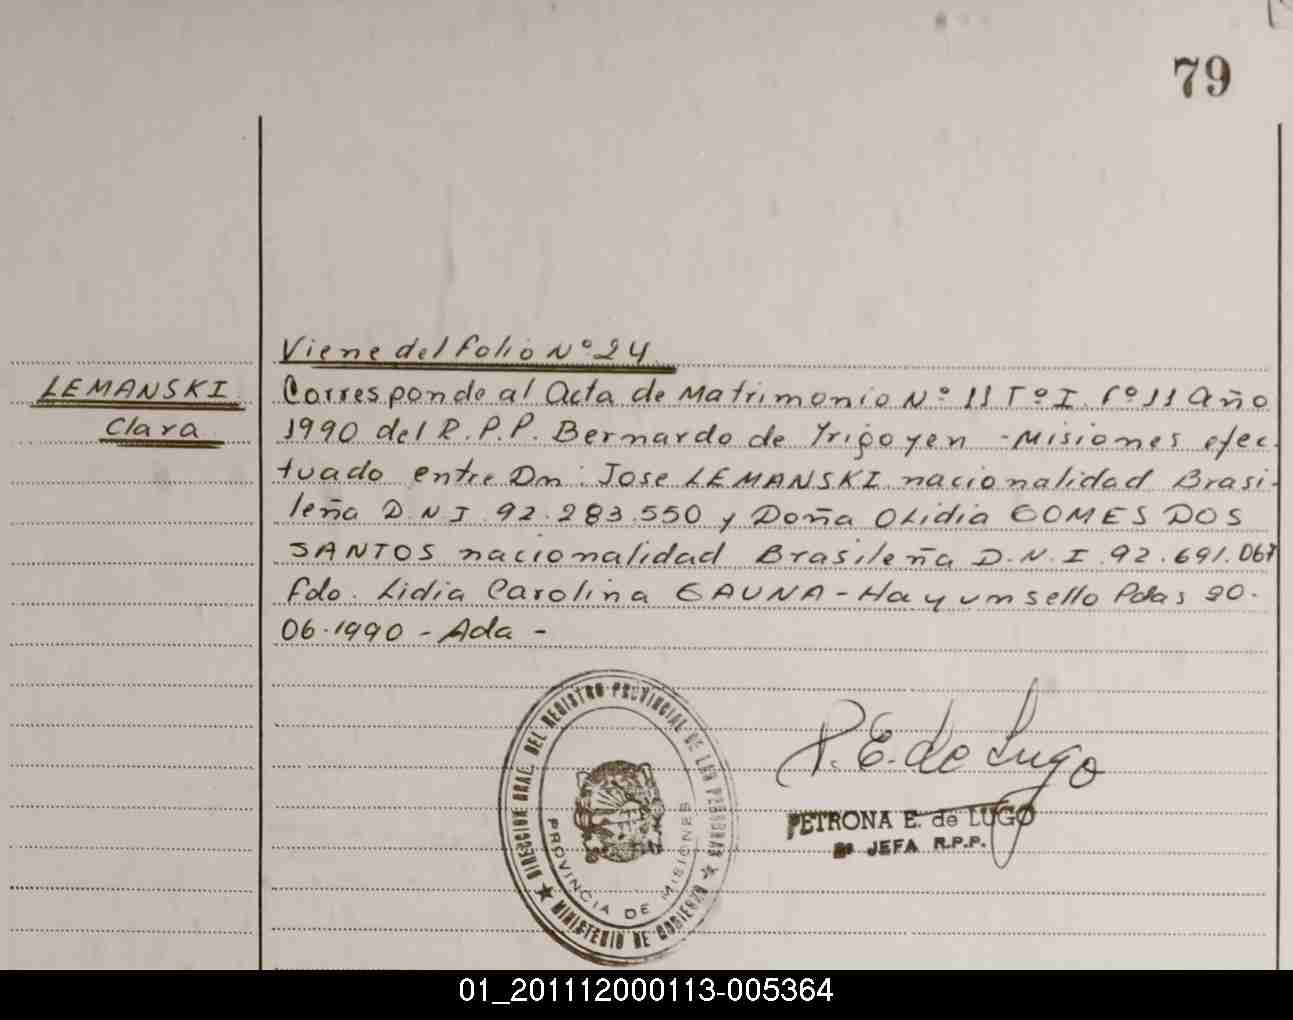 79
Viene del folio Nº 24
LEMANSKI
Clara
Corresponde al Acta de Matrimonio Nº 11 Tº I. Fº 11 Año
1990 del R.P.P. Bernardo de Yrigoyen - Misiones efec-
tuado entre Dn. Jose LEMANSKI nacionalidad Brasi-
leña D.N.I. 92.283.550 y Doña Olidia GOMES DOS
SANTOS nacionalidad Brasileña D.N.I. 92.691.067
fdo. Lidia Carolina GAUNA - Hay un sello Pdas 20.
06.1990 - Ada -
DIRECCION GRAL. DEL REGISTRO PROVINCIAL DE LAS PERSONAS
MINISTERIO DE GOBIERNO
PROVINCIA DE MISIONES
P. E. de Lugo
PETRONA E. de LUGO
JEFA R.P.P.
01_201112000113-005364